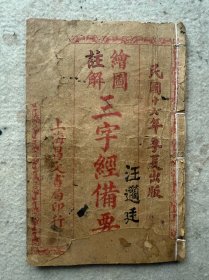 民國十六年季夏出版
繪圖
註解
三字經備要
汪邇廷
上海文書局印行